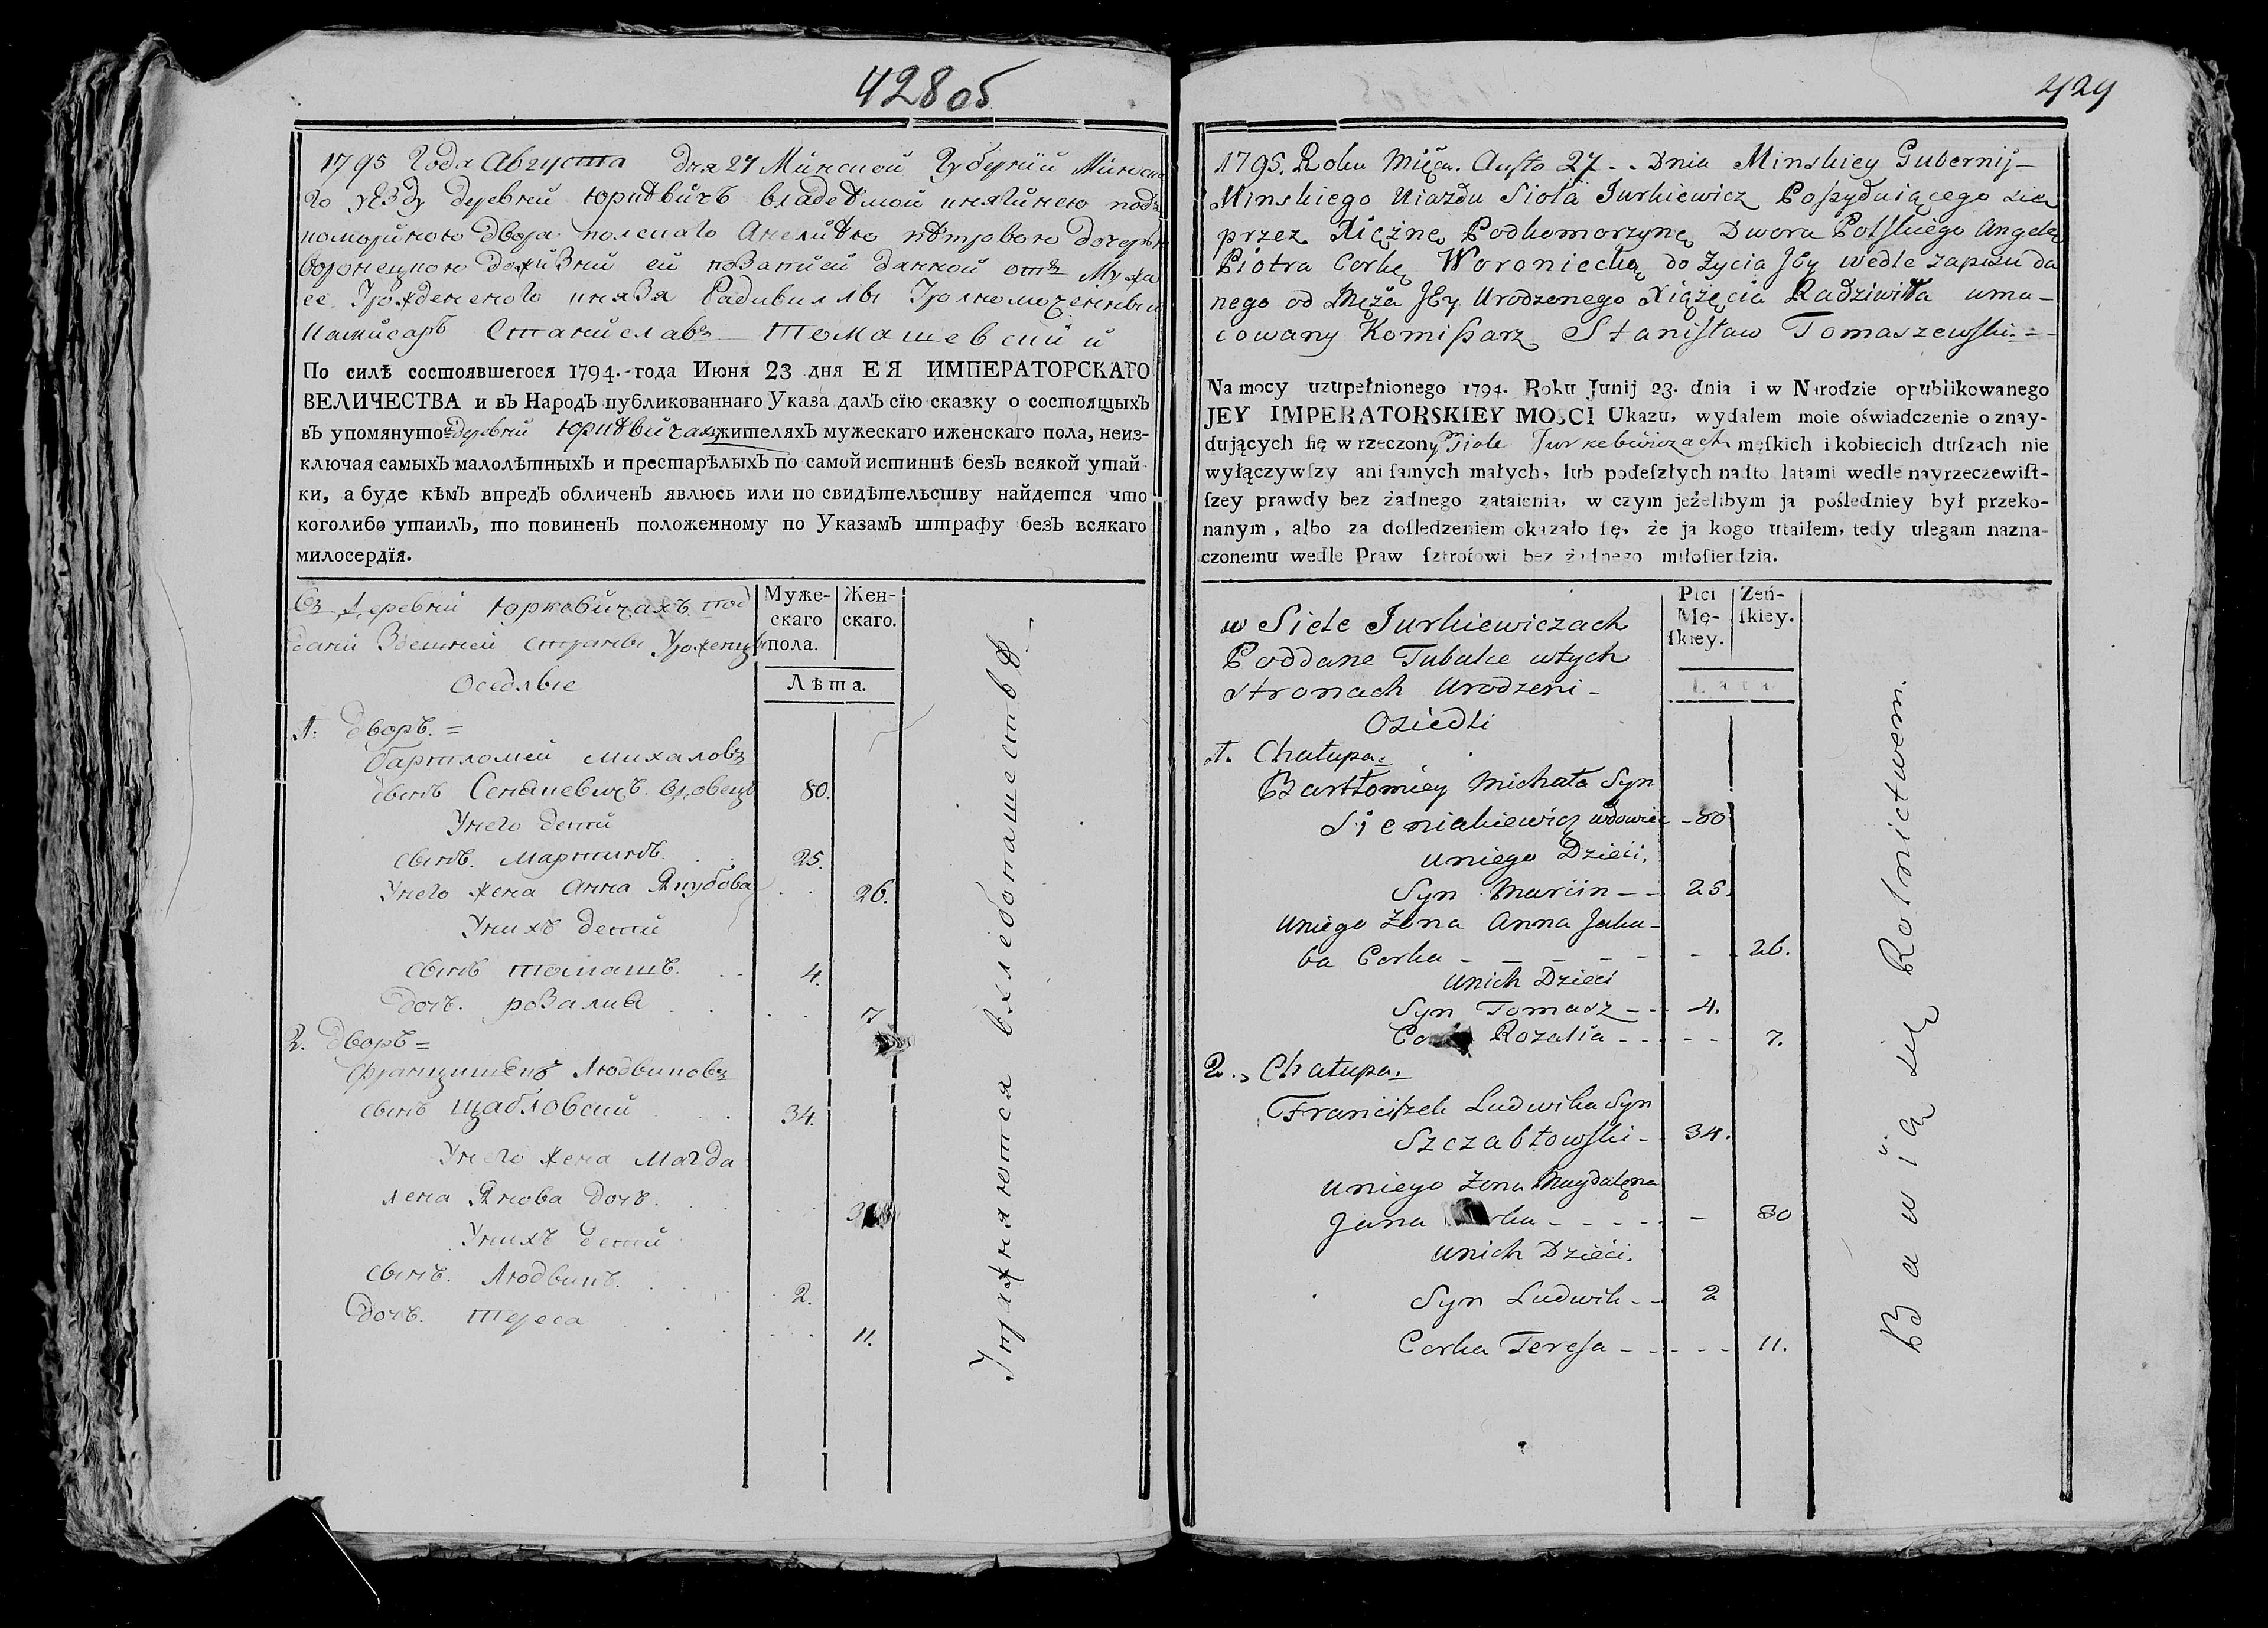 428 об
1795 Года Августа дня 27 Минской Губернии Минска
го уезду деревни Юркѣвичъ владѣемой княгинею подъ
комориною двора полскаго Анелиѣю пѣтровою дочерью
воронецкою дожизни ей позаписи данной отъ Мужа
ее Урожденного князя Радивиллы Уполномоченный
Камисаръ Станиславъ Томашевский
По силѣ состоявшегося 1794. года Июня 23 дня ЕЯ ИМПЕРАТОРСКАГО
ВЕЛИЧЕСТВА и въ Народъ публикованнаго Указа далъ сїю сказку о состоящыхъ
въ упомянутой деревни Юркѣвичахъ жителяхъ мужескаго иженскаго пола, неиз-
ключая самыхъ малолѣтныхъ и престарѣлыхъ по самой истиннѣ безъ всякой утай-
ки, а буде кѣмъ впредъ обличенъ явлюсь или по свидѣтельству найдется что
коголибо утаилъ, то повиненъ положенному по Указамъ штрафу безъ всякаго
милосердїя.
Въ деревни Юркевичахъ под
даний Здешней страны Уроженцы
Оседлые
Муже-скаго пола.
Жен-скаго.
Лѣта.
1. дворъ. =
бартломей михаловъ
сынъ Сенякевичъ. вдовецъ 80.
Унего дети
сынъ. мартинъ. 25.
Унего жена Анна Якубова 26.
Унихъ дети
сынъ томашъ. 4.
дочъ. розалия 7
2. дворъ =
францишекъ Людвиковъ
сынъ щабловский 34.
Унего жена Магда
лена Янова дочъ.
Унихъ дети
сынъ. Людвикъ. 2.
дочъ. тереса 11.
Упражняются въ хлебопашествѣ.
429
1795. Roku Mięca. Austa 27 . . Dnia Minskiey Gubernij –
Minskiego Uiazdu Sioła Jurkiewicz Possyduiącego się
przez Xiężnę Podkomorzynę Dwora Polskiego Angelę
Piotra Corkę Woroniecką do Zycia Jey wedle zapisu da
nego od Męża Jey Urodzonego Xiążęcia Radziwiłła umo –
cowany Komissarz Stanisław Tomaszewski. – –
Na mocy uzupełnionego 1794. Roku Junij 23. dnia i w Narodzie opublikowanego
JEY IMPERATORSKIEY MOSCI Ukazu, wydałem moie oświadczenie o znay-
dujących ſię w rzeczony Siole Jurkebiczach męſkich i kobiecich duſzach nie
wyłączywſzy ani ſamych małych, lub podeſzłych nadto latami wedle nayrzeczewiſt-
ſzey prawdy bez żadnego zataienia, w czym jeżelibym ja poślednièy był przeko-
nanym, albo za doſledzeniem okazało ſię, że ja kogo utaiłem, tedy ulegam nazna-
czonemu wedle Praw ſztrofowi bez żadnego miłoſierdzia.
w Siele Jurkiewiczach
Poddane Tubulce wtych
stronach Urodzeni –
Osiedli
Płci Mę-ſkiey.
Zeń-ſkiey.
Lata
1. Chałupa =
Bartłomiey Michała Syn
Sieniakiewicz wdowiec – 80
uniego Dzieci.
Syn Marcin – – 25.
uniego Zona Anna Jaku –
ba Corka – – – – – 26.
unich Dzieci
Syn Tomasz – – 4.
Rozalia – – – – 7.
2. Chałupa. =
Franciszek Ludwika Syn
Szczabłowski – 34.
uniego Zona Magdalena
Jana – – – – – – 30
unich Dzieci.
Syn Ludwik – – 2
Corka Teresa – – – – – 11.
Bawią się Rolnictwem.